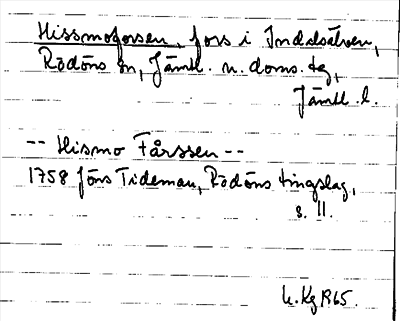 Hissmoforsen, fors i Indalsälven,
Rödöns sn, Jämtl. n. doms. tg,
Jämtl. l.
-- Hismo Fårssen --
1758 Jöns Tideman, Rödöns tingslag,
s. 11.
U. Kg 1965.